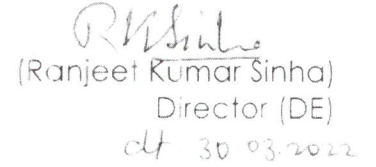 RKSinha
(Ranjeet Kumar Sinha)
Director (DE)
dt 30 03.2022